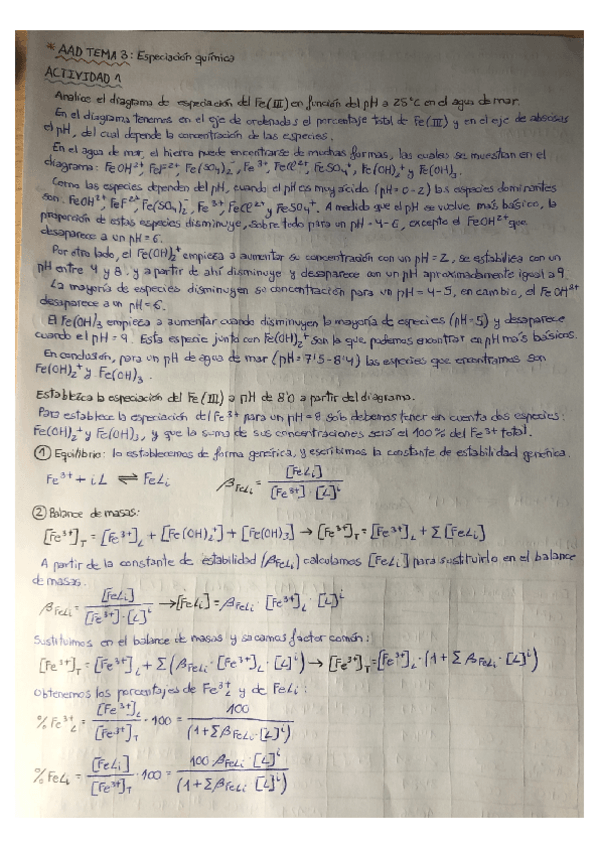 * AAD TEMA 3: Especiación química
ACTIVIDAD 1
Analiza el diagrama de especiación del Fe(III) en función del pH a 25°C en el agua de mar.
En el diagrama tenemos en el eje de ordenadas el porcentaje total de Fe(III) y en el eje de abscisas
el pH, del cual depende la concentración de las especies.
En el agua de mar, el hierro puede encontrarse de muchas formas, las cuales se muestran en el
diagrama: FeOH²⁺, FeF²⁺, Fe(SO₄)₂⁻, Fe³⁺, FeCl²⁺, FeSO₄⁺, Fe(OH)₂⁺ y Fe(OH)₃.
Como las especies dependen del pH, cuando el pH es muy ácido (pH=0-2) las especies dominantes
son: FeOH²⁺, FeF²⁺, Fe(SO₄)₂⁻, Fe³⁺, FeCl²⁺ y FeSO₄⁺. A medida que el pH se vuelve más básico, la
proporción de estas especies disminuye, sobre todo para un pH=4-6, excepto el FeOH²⁺ que
desaparece a un pH=6.
Por otro lado, el Fe(OH)₂⁺ empieza a aumentar su concentración con un pH=2, se estabiliza con un
pH entre 4 y 8 y a partir de ahí disminuye y desaparece con un pH aproximadamente igual a 9.
La mayoría de especies disminuyen su concentración para un pH=4-5, en cambio, el FeOH²⁺
desaparece a un pH=6.
El Fe(OH)₃ empieza a aumentar cuando disminuyen la mayoría de especies (pH=5) y desaparece
cuando el pH=9. Esta especie junto con Fe(OH)₂⁺ son la que podemos encontrar en pH más básicos.
En conclusión, para un pH de agua de mar (pH=7'5-8'4) las especies que encontramos son
Fe(OH)₂⁺ y Fe(OH)₃.
Establezca la especiación del Fe(III) a pH de 8'0 a partir del diagrama.
Para establece la especiación del Fe³⁺ para un pH=8 sólo debemos tener en cuenta dos especies:
Fe(OH)₂⁺ y Fe(OH)₃, y que la suma de sus concentraciones será el 100% del Fe³⁺ total.
① Equilibrio: lo establecemos de forma genérica, y escribimos la constante de estabilidad genérica.
Fe³⁺ + iL ⇌ FeLi β_FeLi = [FeLi] / [Fe³⁺]·[L]ⁱ
② Balance de masas:
[Fe³⁺]_T = [Fe³⁺]_L + [Fe(OH)₂⁺] + [Fe(OH)₃] → [Fe³⁺]_T = [Fe³⁺]_L + Σ[FeLi]
A partir de la constante de estabilidad (β_FeLi) calculamos [FeLi] para sustituirlo en el balance
de masas.
β_FeLi = [FeLi] / [Fe³⁺]_L·[L]ⁱ → [FeLi] = β_FeLi·[Fe³⁺]_L·[L]ⁱ
Sustituimos en el balance de masas y sacamos factor común:
[Fe³⁺]_T = [Fe³⁺]_L + Σ(β_FeLi·[Fe³⁺]_L·[L]ⁱ) → [Fe³⁺]_T = [Fe³⁺]_L·(1+Σβ_FeLi·[L]ⁱ)
Obtenemos los porcentajes de Fe³⁺_L y de FeLi:
%Fe³⁺_L = [Fe³⁺]_L / [Fe³⁺]_T · 100 = 100 / (1+Σβ_FeLi·[L]ⁱ)
%FeLi = [FeLi] / [Fe³⁺]_T · 100 = 100·β_FeLi·[L]ⁱ / (1+Σβ_FeLi·[L]ⁱ)